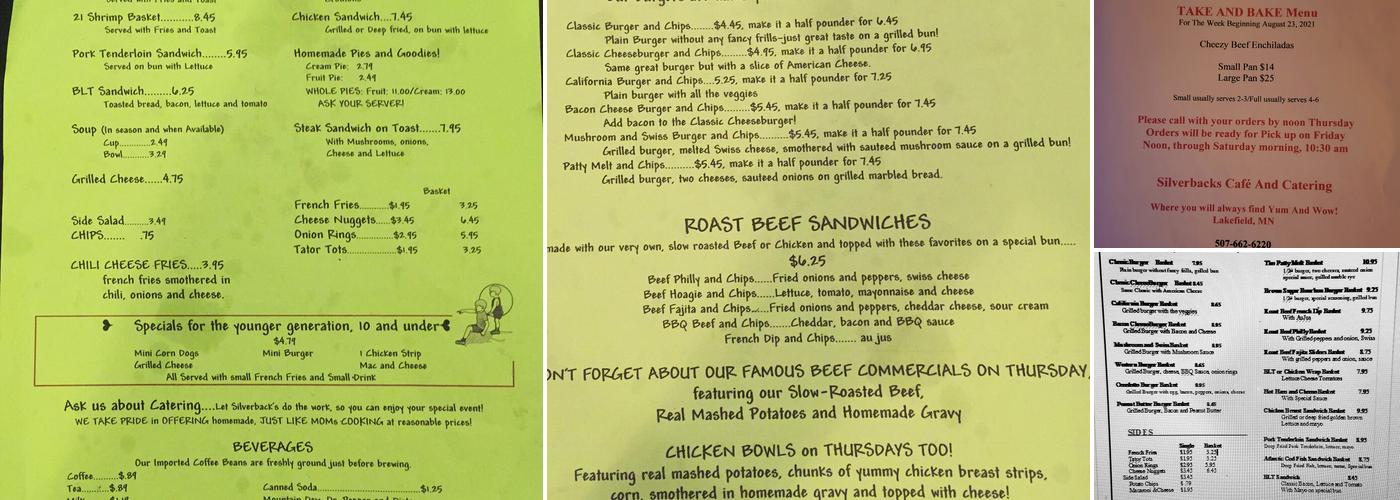 21 Shrimp Basket...........8.45
Served with Fries and Toast
Pork Tenderloin Sandwich.......5.95
Served on bun with Lettuce
BLT Sandwich.......6.25
Toasted bread, bacon, lettuce and tomato
Soup (In season and when Available)
Cup............2.49
Bowl...........3.29
Grilled Cheese......4.75
Side Salad........3.49
CHIPS....... .75
CHILI CHEESE FRIES.....3.95
french fries smothered in
chili, onions and cheese.
Chicken Sandwich....7.45
Grilled or Deep fried, on bun with lettuce
Homemade Pies and Goodies!
Cream Pie: 2.79
Fruit Pie: 2.49
WHOLE PIES: Fruit: 11.00/Cream: 13.00
ASK YOUR SERVER!
Steak Sandwich on Toast.......7.95
With Mushrooms, onions,
Cheese and Lettuce
Basket
French Fries.........$1.95 3.25
Cheese Nuggets....$3.45 6.45
Onion Rings.........$2.95 5.95
Tator Tots...........$1.95 3.25
Specials for the younger generation, 10 and under
$4.79
Mini Corn Dogs Mini Burger 1 Chicken Strip
Grilled Cheese Mac and Cheese
All Served with small French Fries and Small Drink
Ask us about Catering....Let Silverback's do the work, so you can enjoy your special event!
WE TAKE PRIDE in OFFERING homemade, JUST LIKE MOMs COOKING at reasonable prices!
BEVERAGES
Our Imported Coffee Beans are freshly ground just before brewing.
Coffee.....$.89
Tea.......$.89 Canned Soda...................$1.25
Classic Burger and Chips.......$4.45, make it a half pounder for 6.45
Plain Burger without any fancy frills-just great taste on a grilled bun!
Classic Cheeseburger and Chips.....$4.95, make it a half pounder for 6.95
Same great burger but with a slice of American Cheese.
California Burger and Chips....5.25, make it a half pounder for 7.25
Plain burger with all the veggies
Bacon Cheese Burger and Chips.........$5.45, make it a half pounder for 7.45
Add bacon to the Classic Cheeseburger!
Mushroom and Swiss Burger and Chips.........$5.45, make it a half pounder for 7.45
Grilled burger, melted Swiss cheese, smothered with sauteed mushroom sauce on a grilled bun!
Patty Melt and Chips..........$5.45, make it a half pounder for 7.45
Grilled burger, two cheeses, sauteed onions on grilled marbled bread.
ROAST BEEF SANDWICHES
made with our very own, slow roasted Beef or Chicken and topped with these favorites on a special bun.....
$6.25
Beef Philly and Chips.....Fried onions and peppers, swiss cheese
Beef Hoagie and Chips......Lettuce, tomato, mayonnaise and cheese
Beef Fajita and Chips......Fried onions and peppers, cheddar cheese, sour cream
BBQ Beef and Chips.......Cheddar, bacon and BBQ sauce
French Dip and Chips....... au jus
N'T FORGET ABOUT OUR FAMOUS BEEF COMMERCIALS ON THURSDAY,
featuring our Slow-Roasted Beef,
Real Mashed Potatoes and Homemade Gravy
CHICKEN BOWLS on THURSDAYS TOO!
Featuring real mashed potatoes, chunks of yummy chicken breast strips,
corn, smothered in homemade gravy and topped with cheese!
TAKE AND BAKE Menu
For The Week Beginning August 23, 2021
Cheezy Beef Enchiladas
Small Pan $14
Large Pan $25
Small usually serves 2-3/Full usually serves 4-6
Please call with your orders by noon Thursday
Orders will be ready for Pick up on Friday
Noon, through Saturday morning, 10:30 am
Silverbacks Café And Catering
Where you will always find Yum And Wow!
Lakefield, MN
507-662-6220
Classic Burger Basket 7.95
Plain burger without fancy frills, grilled bun
Classic CheeseBurger Basket 8.45
Same Classic with American Cheese
California Burger Basket 8.65
Grilled burger with the veggies
Bacon CheeseBurger Basket 8.95
Grilled Burger with Bacon and Cheese
Mushroom and Swiss Basket
Grilled Burger with Mushroom Sauce
Western Burger Basket 8.65
Grilled Burger, cheese, BBQ Sauce, onion rings
Omelette Burger Basket 8.95
Grilled Burger with egg, bacon, peppers, onions, cheese
Peanut Butter Burger Basket 8.45
Grilled Burger, Bacon and Peanut Butter
SIDES
Single Basket
French Fries $1.95 3.25
Tator Tots $1.95 3.25
Onion Rings $2.95 5.95
Cheese Nuggets $3.45 6.45
Side Salad $3.45
Potato Chips $.79
Macaroni &Cheese $1.95
The Patty Melt Basket 10.95
1/2# burger, two cheeses, sauteed onion
special sauce, grilled marble rye
Brown Sugar Bourbon Burger Basket 9.25
1/2# burger, special seasoning, grilled bun
Roast Beef French Dip Basket 9.75
With Au Jus
Roast Beef Philly Basket 9.25
With Grilled peppers and onion, Swiss
Roast Beef Fajita Sliders Basket 8.75
with grilled peppers and onion, sauce
BLT or Chicken Wrap Basket 7.95
Lettuce Cheese Tomatoes
Hot Ham and Cheese Basket 7.95
With Special Sauce
Chicken Breast Sandwich Basket 9.95
Grilled or deep fried golden brown
Lettuce and mayo
Pork Tenderloin Sandwich Basket 8.95
Deep Fried Pork Tenderloin, lettuce, mayo
Atlantic Cod Fish Sandwich Basket 8.75
Deep Fried Fish, lettuce, mayo, Special bun
BLT Sandwich 8.45
Classic Bacon, Lettuce and Tomato
With Mayo on special bun